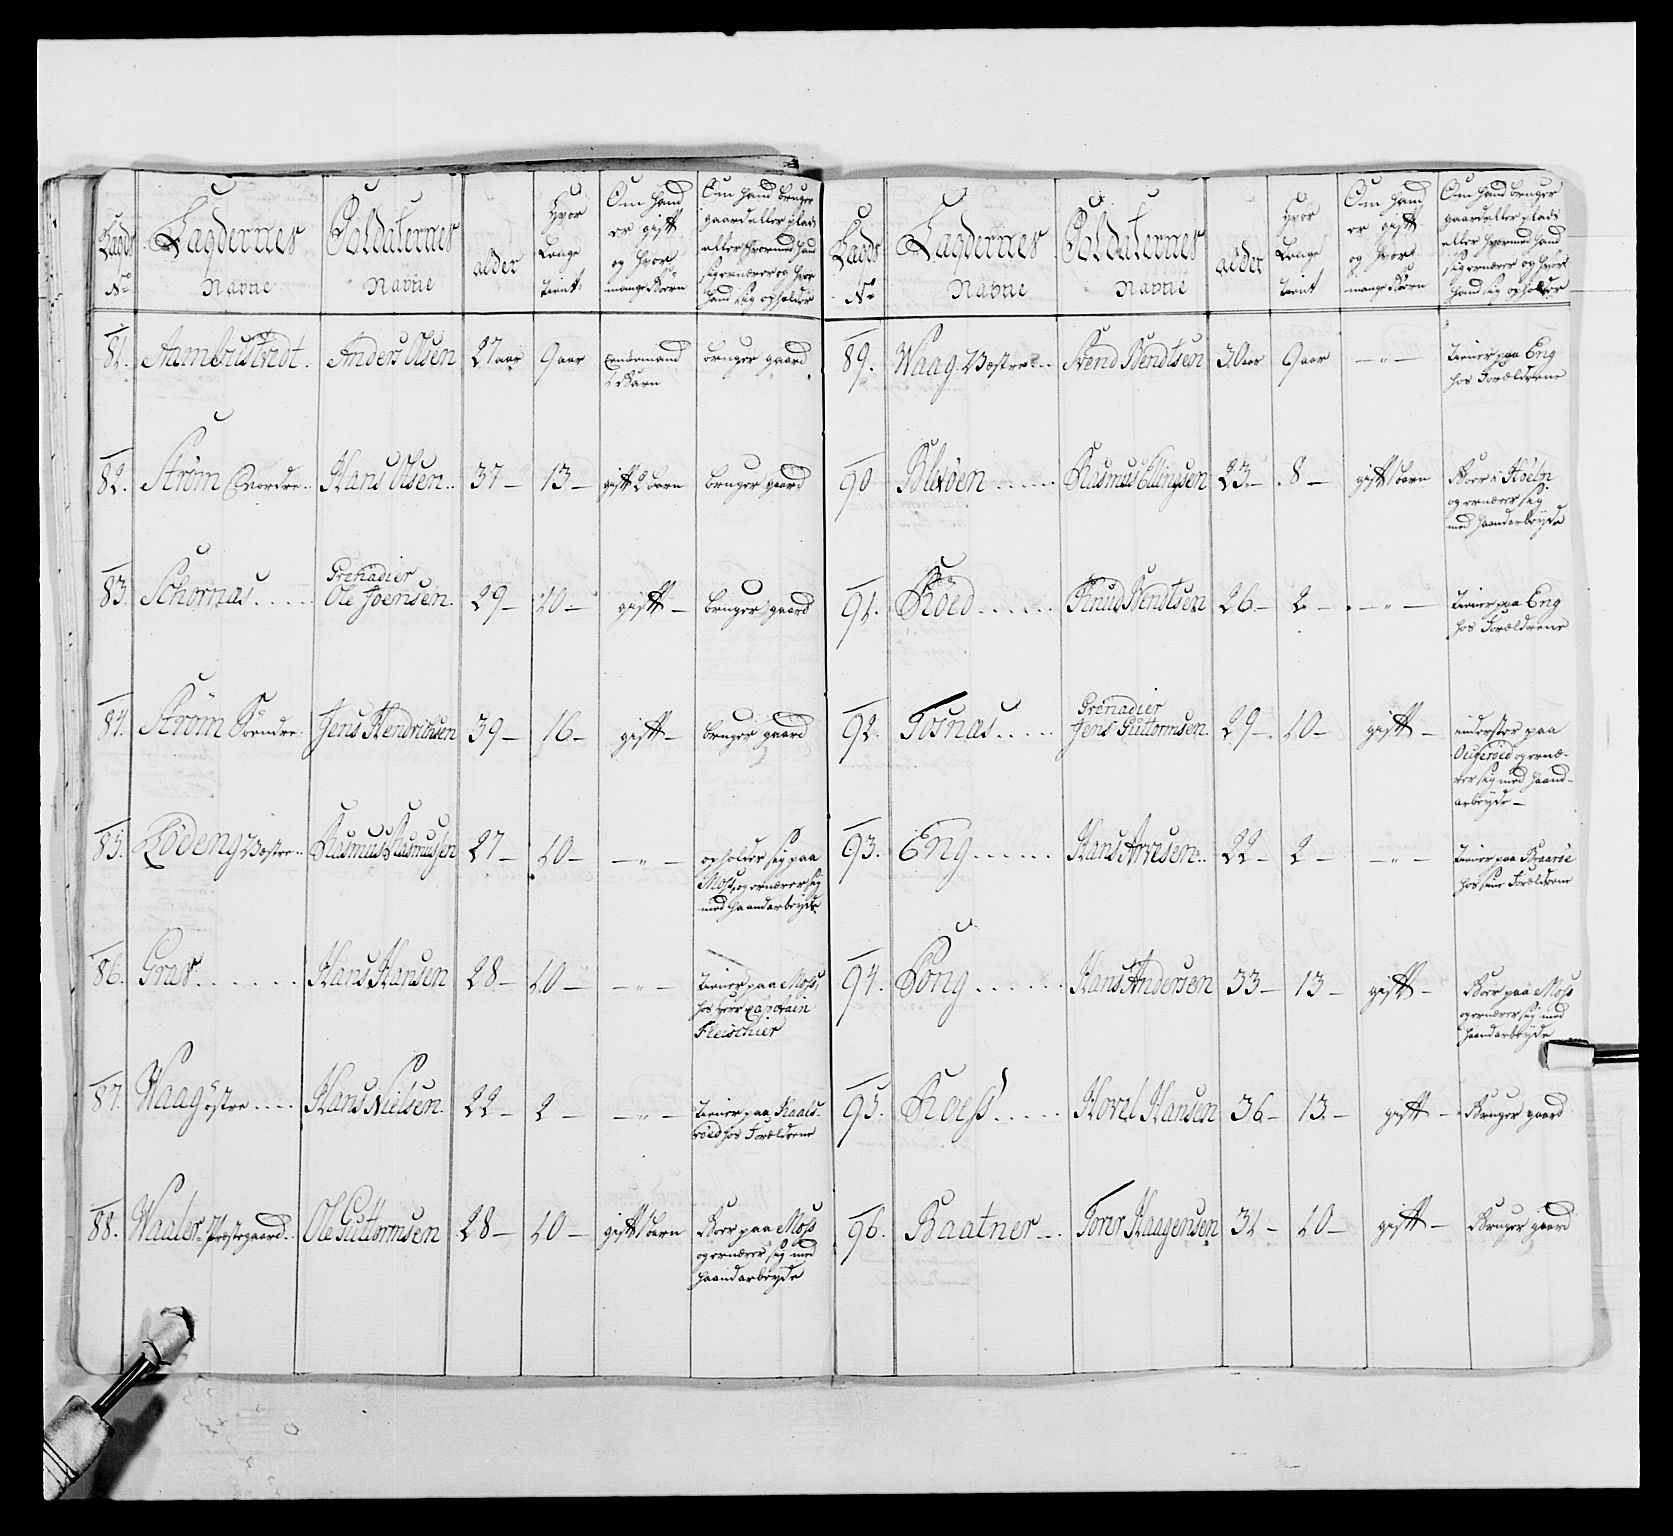 Lagds No | Lagdernes Navne | Soldaternes Navne | alder | Hvor Lenge tient | Om Hand er gift og Hvor mange Børn | Om Hand bruger gaard eller plads eller Hvormed Hand sig ernærer og Hvor Hand sig opholder
81. | | Anders Olsen | 27 aar | 9 aar | Enkemand 2 Barn | bruger gaard
82. | Strøm Nordre | Hans Olsen | 37 – | 13 – | gift 2 barn | bruger gaard
83. | Schornæs | Grenadier Ole Joensen | 29 – | 10 – | gift – | bruger gaard
84. | Strøm Søndre | Jens Hendrichsen | 39 – | 16 – | gift – | bruger gaard
85. | Lödeng Vestre | Rasmus Rasmusen | 27 – | 10 – | – „ – | opholder sig paa Moss, og ernærer sig med haandarbeyde
86. | Gras | Hans Hansen | 28 – | 10 – | – „ – | tiener paa Moss, hos Herr Capitain Fleischier
87. | Waag östre | Hans Nielsen | 22 – | 2 – | – „ – | tiener paa hos Forældrene
88. | Waaler Præstegaard | Ole Guttormsen | 28 – | 10 – | gift 1 barn | Boer paa Moss og ernærer sig med haandarbeyde
Lagds No | Lagdernes Navne | Soldaternes Navne | alder | Hvor Lenge tient | Om Hand er gift og Hvor mange Børn | Om Hand bruger gaard eller plads eller Hvormed Hand sig ernærer og Hvor Hand sig opholder
89. | Waag Vestre | Svend Bendtsen | 30 aar | 9 aar | – „ – | tiener paa Eng hos Forældrene
90 | | Rasmus Ellingsen | 23 – | 8 – | gift 1 barn | Boer i og ernærer sig med haandarbeyde
91. | Röed | Knud Bendtsen | 26 – | 2 – | – „ – | tiener paa Eng hos Forældrene
92. | Tosnæs | Grenadier Jens Guttormsen | 29 – | 10 – | gift – | inderster paa og ernærer sig med haandarbeyde –
93. | Eng | Hans Arvesen | 22 – | 2 – | – „ – | tiener paa hos sine Forældrene
94. | Song | Hans Andersen | 33 – | 13 – | gift – | Boer paa Moss og ernærer sig med haandarbeyde
95. | Roess | Hovel Hansen | 36 – | 13 – | gift – | Bruger gaard
96. | Baatner | Torer Haagensen | 31 – | 10 – | gift – | Bruger gaard